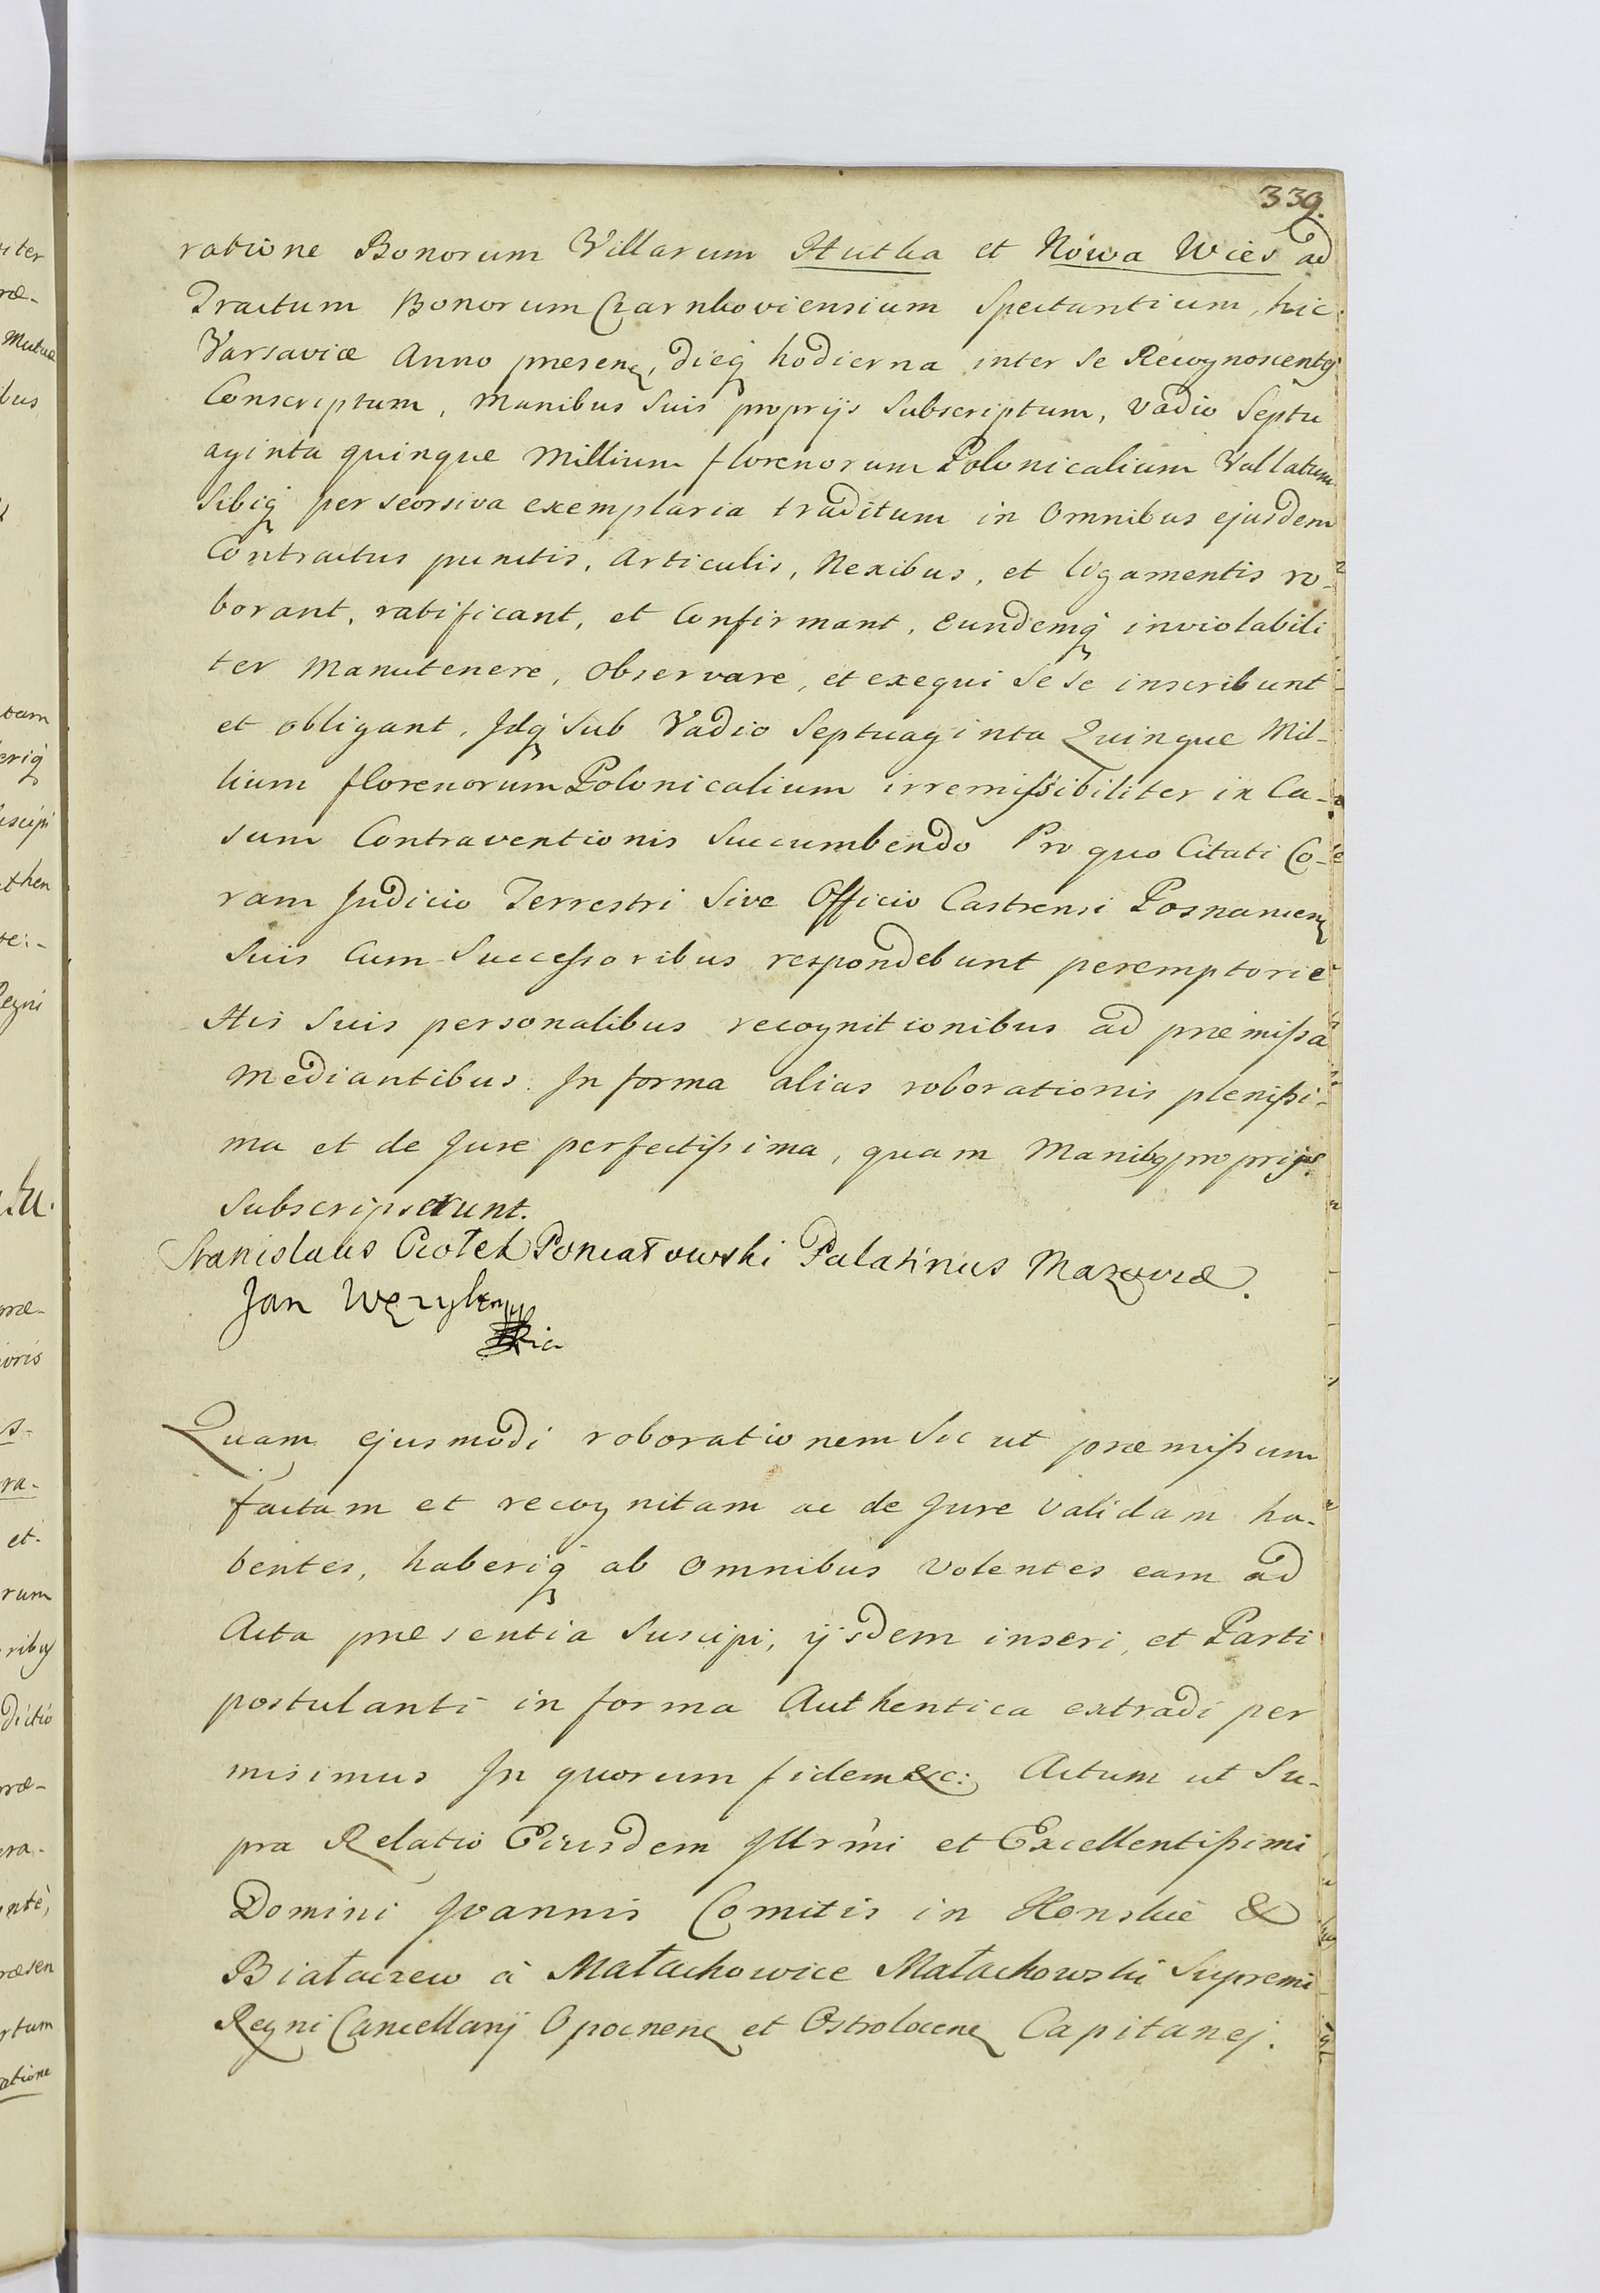 339.
ratione Bonorum Villarum Hutka et Nowa Wies ad
Tractum Bonorum Czarnkoviensium Spectantium, hic
Varsaviæ Anno præsenę, dieq́ hodierna inter se Recognoscentes
Conscriptum, Manibus Suis proprijs Subscriptum, Vadio Septu
aginta quinque Millium florenorum Polonicalium Vallatum
Sibiq́ per seorsiva exemplaria traditum in Omnibus ejusdem
Contractus punctis, Articulis, Nexibus, et ligamentis ro-
borant, ratificant, et Confirmant, Eundemq́ inviolabili
ter Manutenere, Observare, et exequi Se se inscribunt
et obligant, Idq́ Sub Vadio Septuaginta Quinque Mil-
lium florenorum Polonicalium irremissibiliter in Ca-
sum Contraventionis Succumbendo Pro quo Citati Co-
ram Judicio Terrestri Sive Officio Castrensi Posnanienę
Suis Cum Successoribus respondebunt peremptorie
His Suis personalibus recognitionibus ad præmissa
Mediantibus. In forma alias roborationis plenissi-
ma et de Jure perfectissima, quam Manibq proprijs
Subscripserunt.
Stanislaus Ciołek Poniatowski Palatinus Mazoviæ.
Jan Wężyk
Quam ejusmodi roborationem Sic ut præmissum
factam et recognitam ac de Jure Validam ha-
bentes, haberiq́ ab Omnibus Volentes eam ad
Acta præsentia Suscipi, ijsdem inseri, et Parti
postulanti in forma Authentica extradi per
misimus In quorum fidem &c: Actum ut Su-
pra Relatio Eiusdem Illrmi et Excellentissimi
Domini Joannis Comitis in Konskie &
Białaczew à Małachowice Małachowski Supremi
Regni Cancellarij Opocnenę et Ostrolecenę Capitanej.